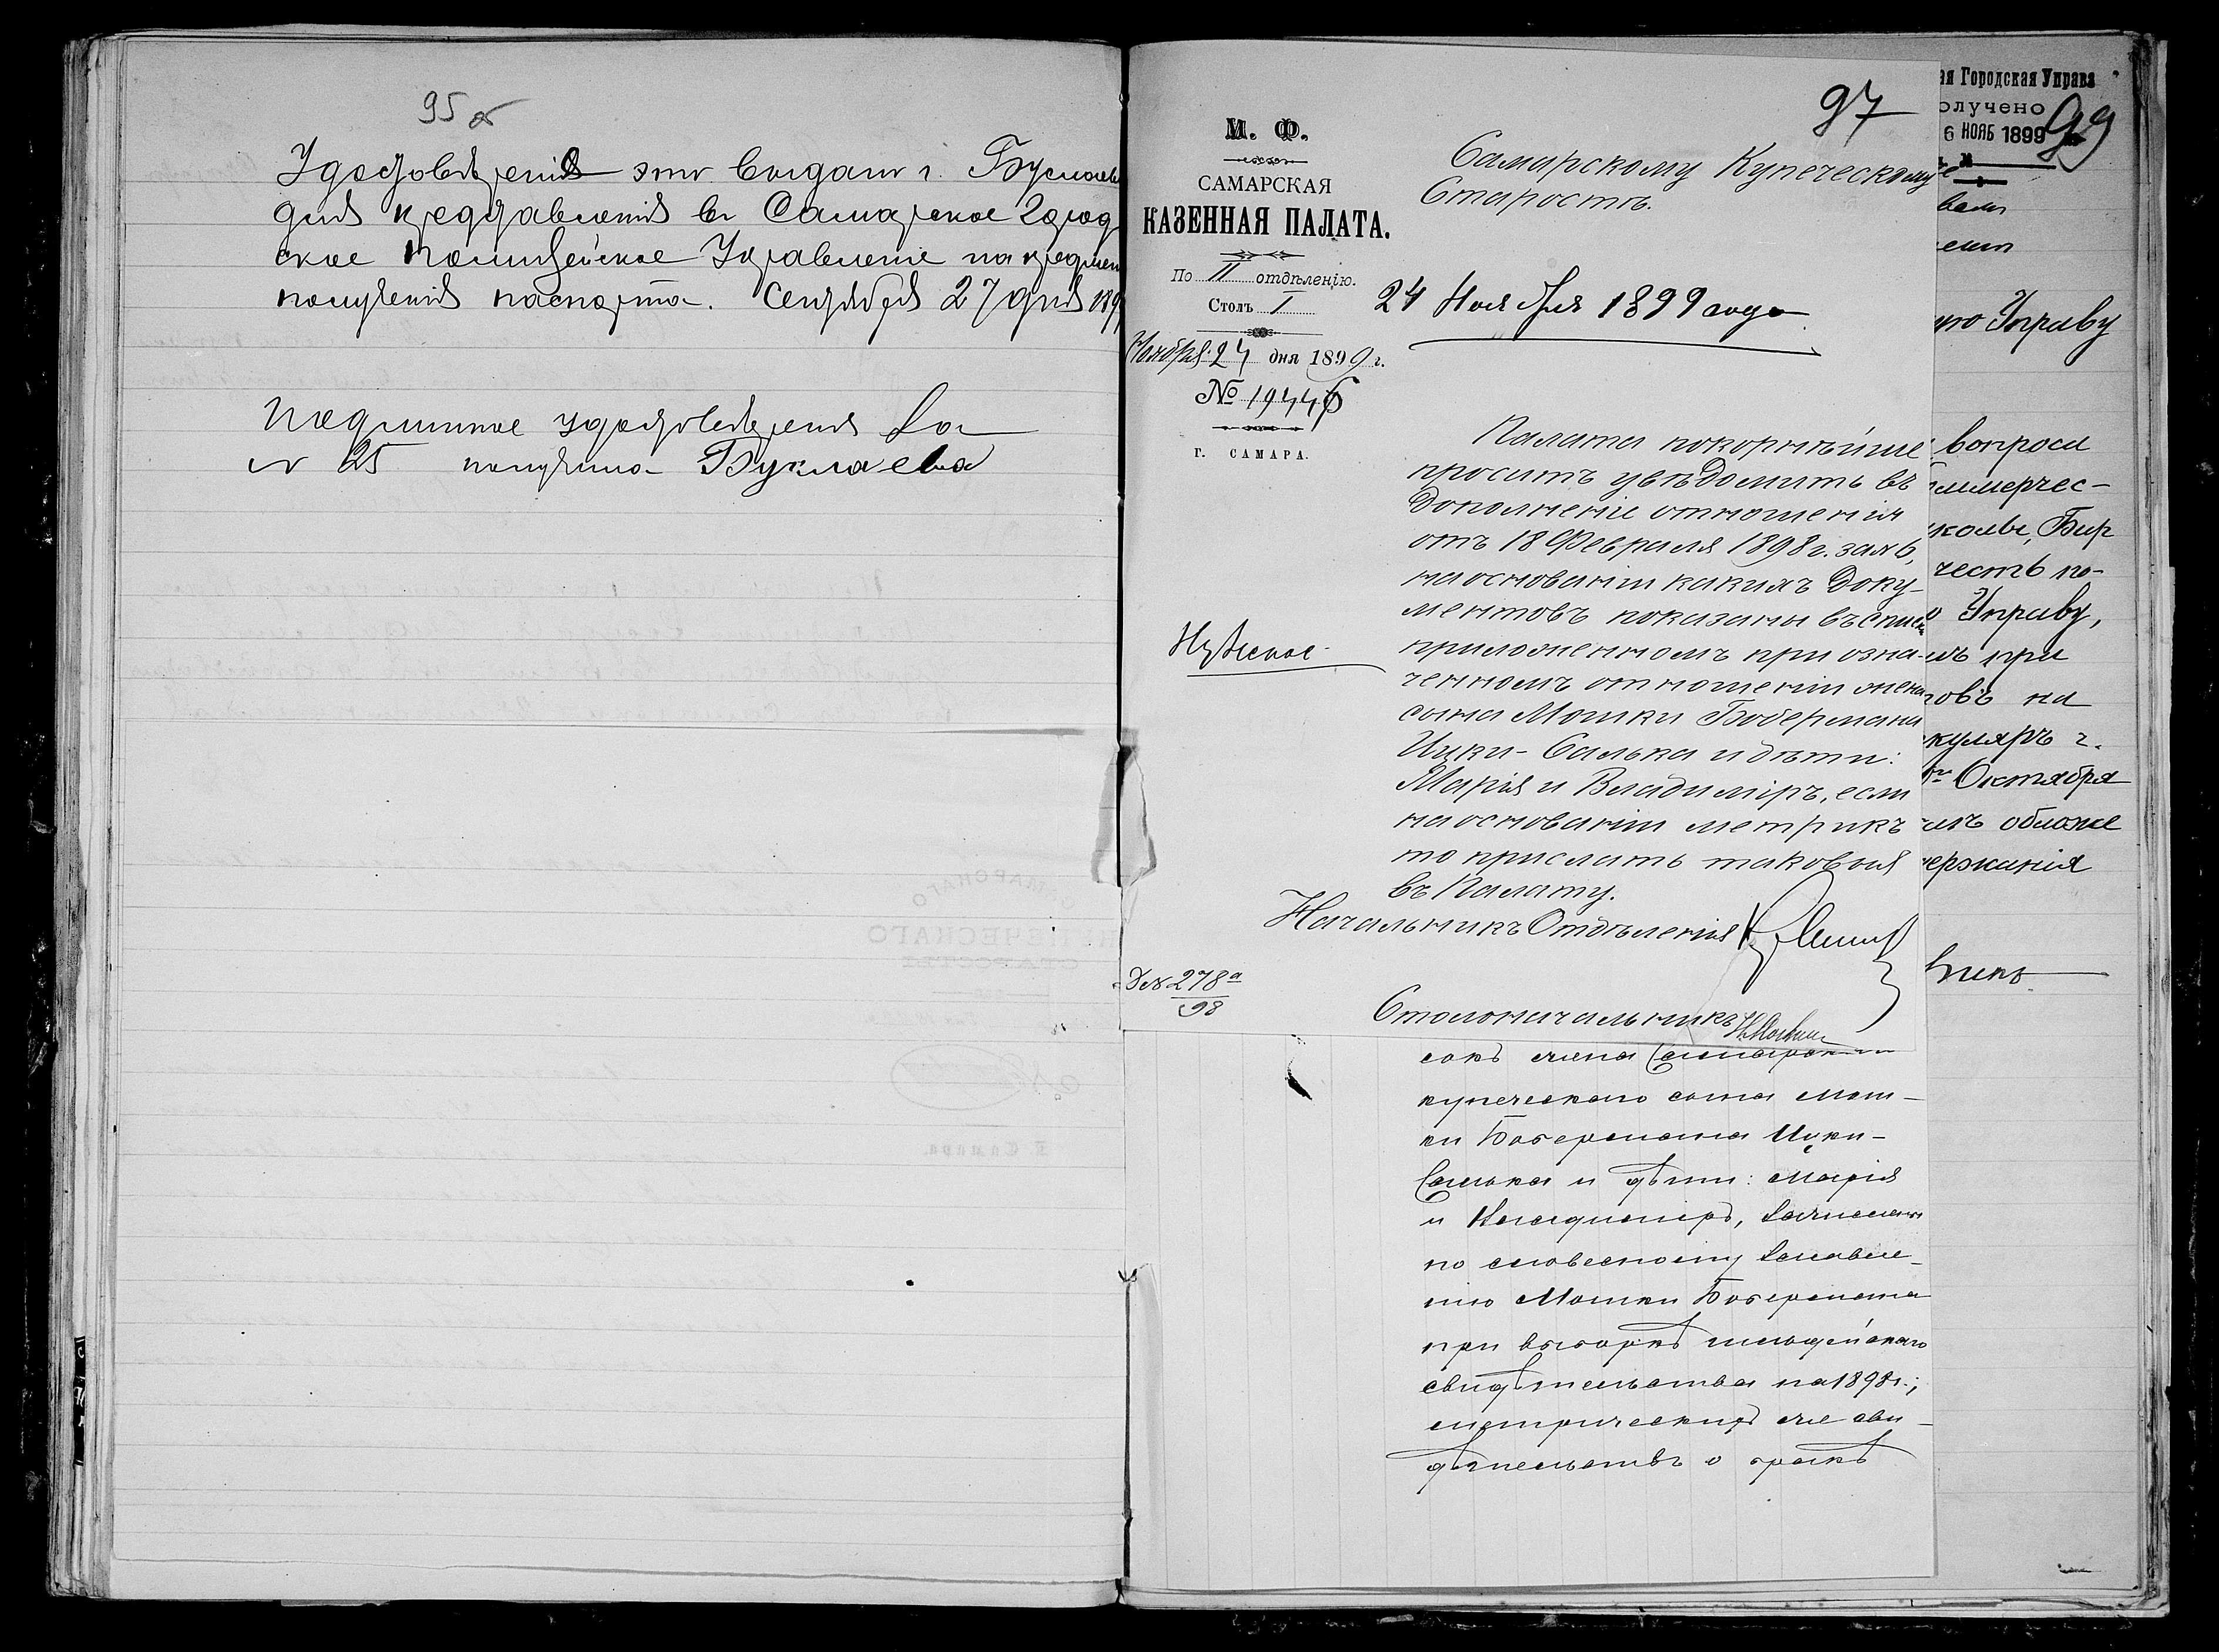 95 об
Удостовѣреніе это выдано г. Буслаева
для представленія въ Самарское Город
ское Полицейское Управленіе на предмет
полученія паспорта. Сентября 27 дня 189
Подлинное удостовѣреніе за
№ 25 получила Буслаева
97
М. Ф.
САМАРСКАЯ
КАЗЕННАЯ ПАЛАТА.
По II отдѣленію.
Столъ I
Ноября 24 дня 1899 г.
№ 19446
Г. САМАРА.
Самарскому Купеческому
Старостѣ.
24 Ноября 1899 года
Палата покорнѣйше
проситъ увѣдомить въ
дополненіе отношенія
отъ 18 Февраля 1898 г. за № 6,
на основаніи какихъ доку-
ментовъ показаны въ спис
приложенномъ при озна-
ченномъ отношеніи жена
сына Мошки Бобермана
Цуки-Салька и дѣти:
Марія и Владиміръ, если
на основаніи метрикъ
то прислать таковыя
въ Палату.
Начальникъ Отдѣленія
Д № 278а
98
Столоначальникъ
сокъ жена Самарскаго
купеческаго сына Мош-
ки Бобермана Цуки-
Салька и дѣти: Марія
и Владиміръ, записаны
по словесному заявле-
нію Мошки Бобермана
при выборкѣ гильдейскаго
свидѣтельства на 1898 г.;
метрическихъ же сви-
дѣтельствъ о бракѣ
ая Городская Управа
олучено
6 НОЯБ 1899
99
№
ую Управу
вопроса
оммерчес-
колы, Бир
честь по-
Управу,
при
овъ на
куляръ г.
Октября
обложе
держанія